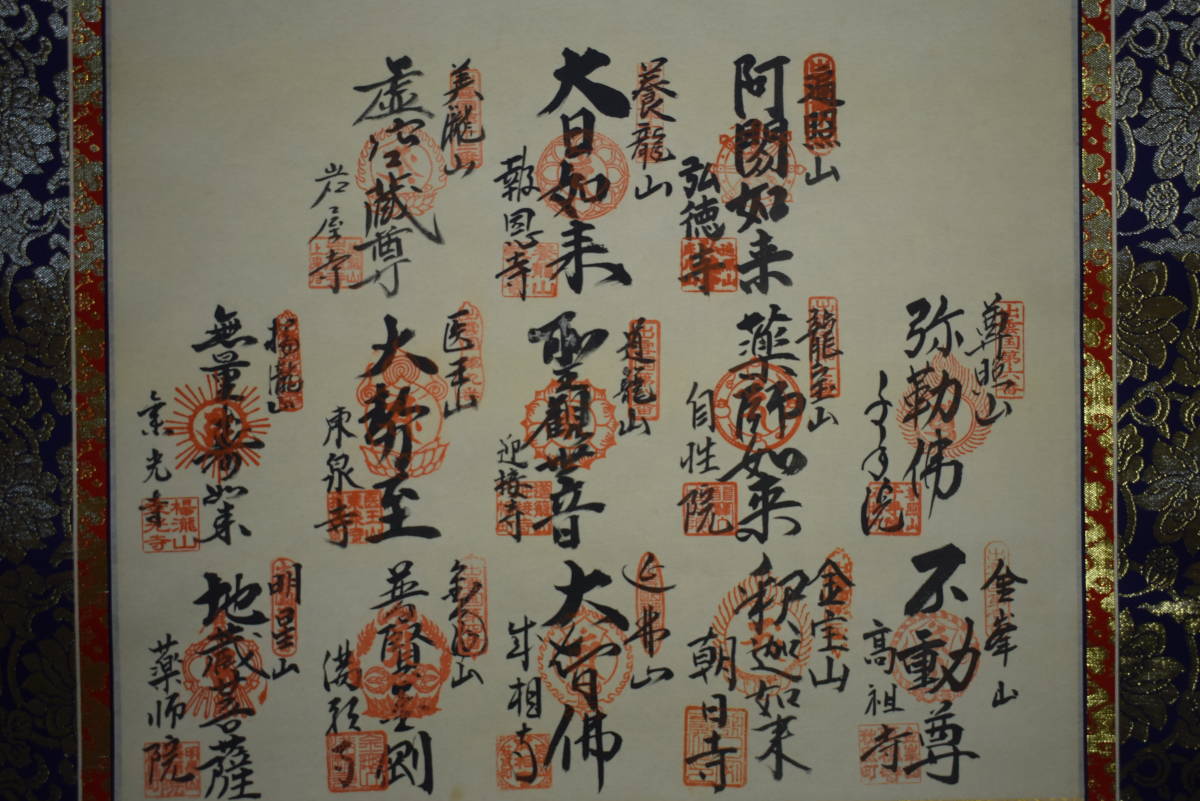 遍照山
阿閦如来
弘徳寺
養龍山
大日如来
報恩寺
美瀧山
虚空蔵尊
岩屋寺
尊照山
弥勒佛
千手院
龍宝山
薬師如来
自性院
道龍山
聖観世音
迎接寺
医王山
大勢至
東泉寺
楊瀧山
無量寿如来
光寺
楊瀧山
金峯山
不動尊
高祖寺
金宝山
釈迦如来
朝日寺
大日佛
成相寺
山
普賢金剛
満願寺
明星山
地蔵菩薩
薬師院